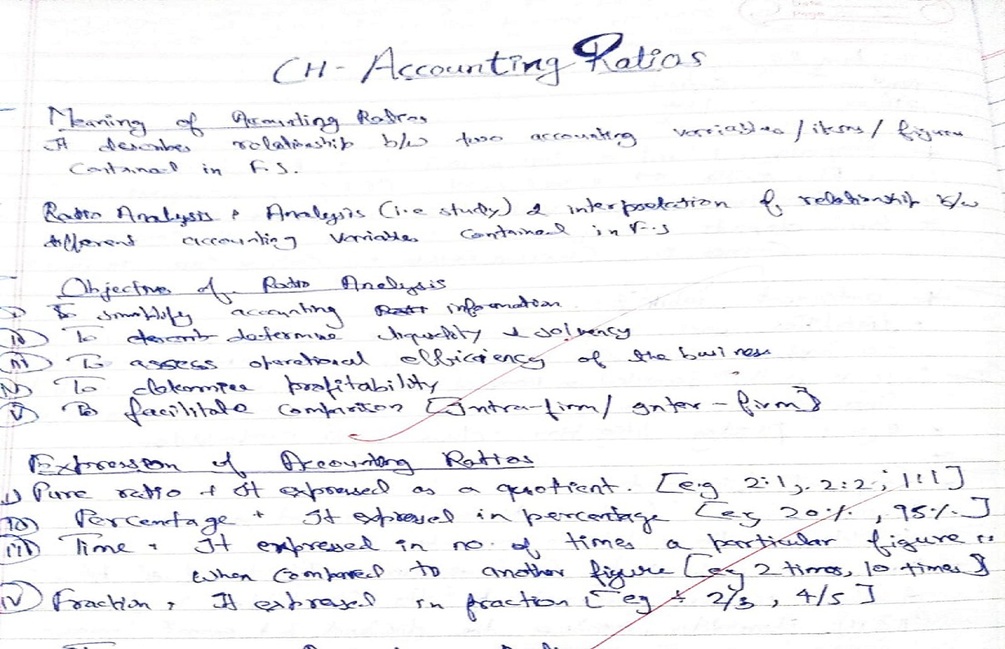 CH- Accounting Ratios
Meaning of Accounting Ratios
It describes relationship b/w two accounting variables / items / figures
Contained in F.S.
Ratio Analysis : Analysis (i.e study) & interpretation of relationship b/w
different accounting variables contained in F.S
Objectives of Ratio Analysis
i) To simplify accounting information
ii) To determine liquidity & solvency
iii) To assess operational efficiency of the business
iv) To determine profitability
v) To facilitate comparison [Intra-firm/ Inter-firm}
Expression of Accounting Ratios
i) Pure ratio : It expressed as a quotient. [eg 2:1, 2:2; 1:1]
ii) Percentage : It expressed in percentage [eg 20%, 95%]
iii) Time : It expressed in no. of times a particular figure is
when compared to another figure [eg 2 times, 10 times}
iv) Fraction : It expressed in fraction [eg : 2/3, 4/5]